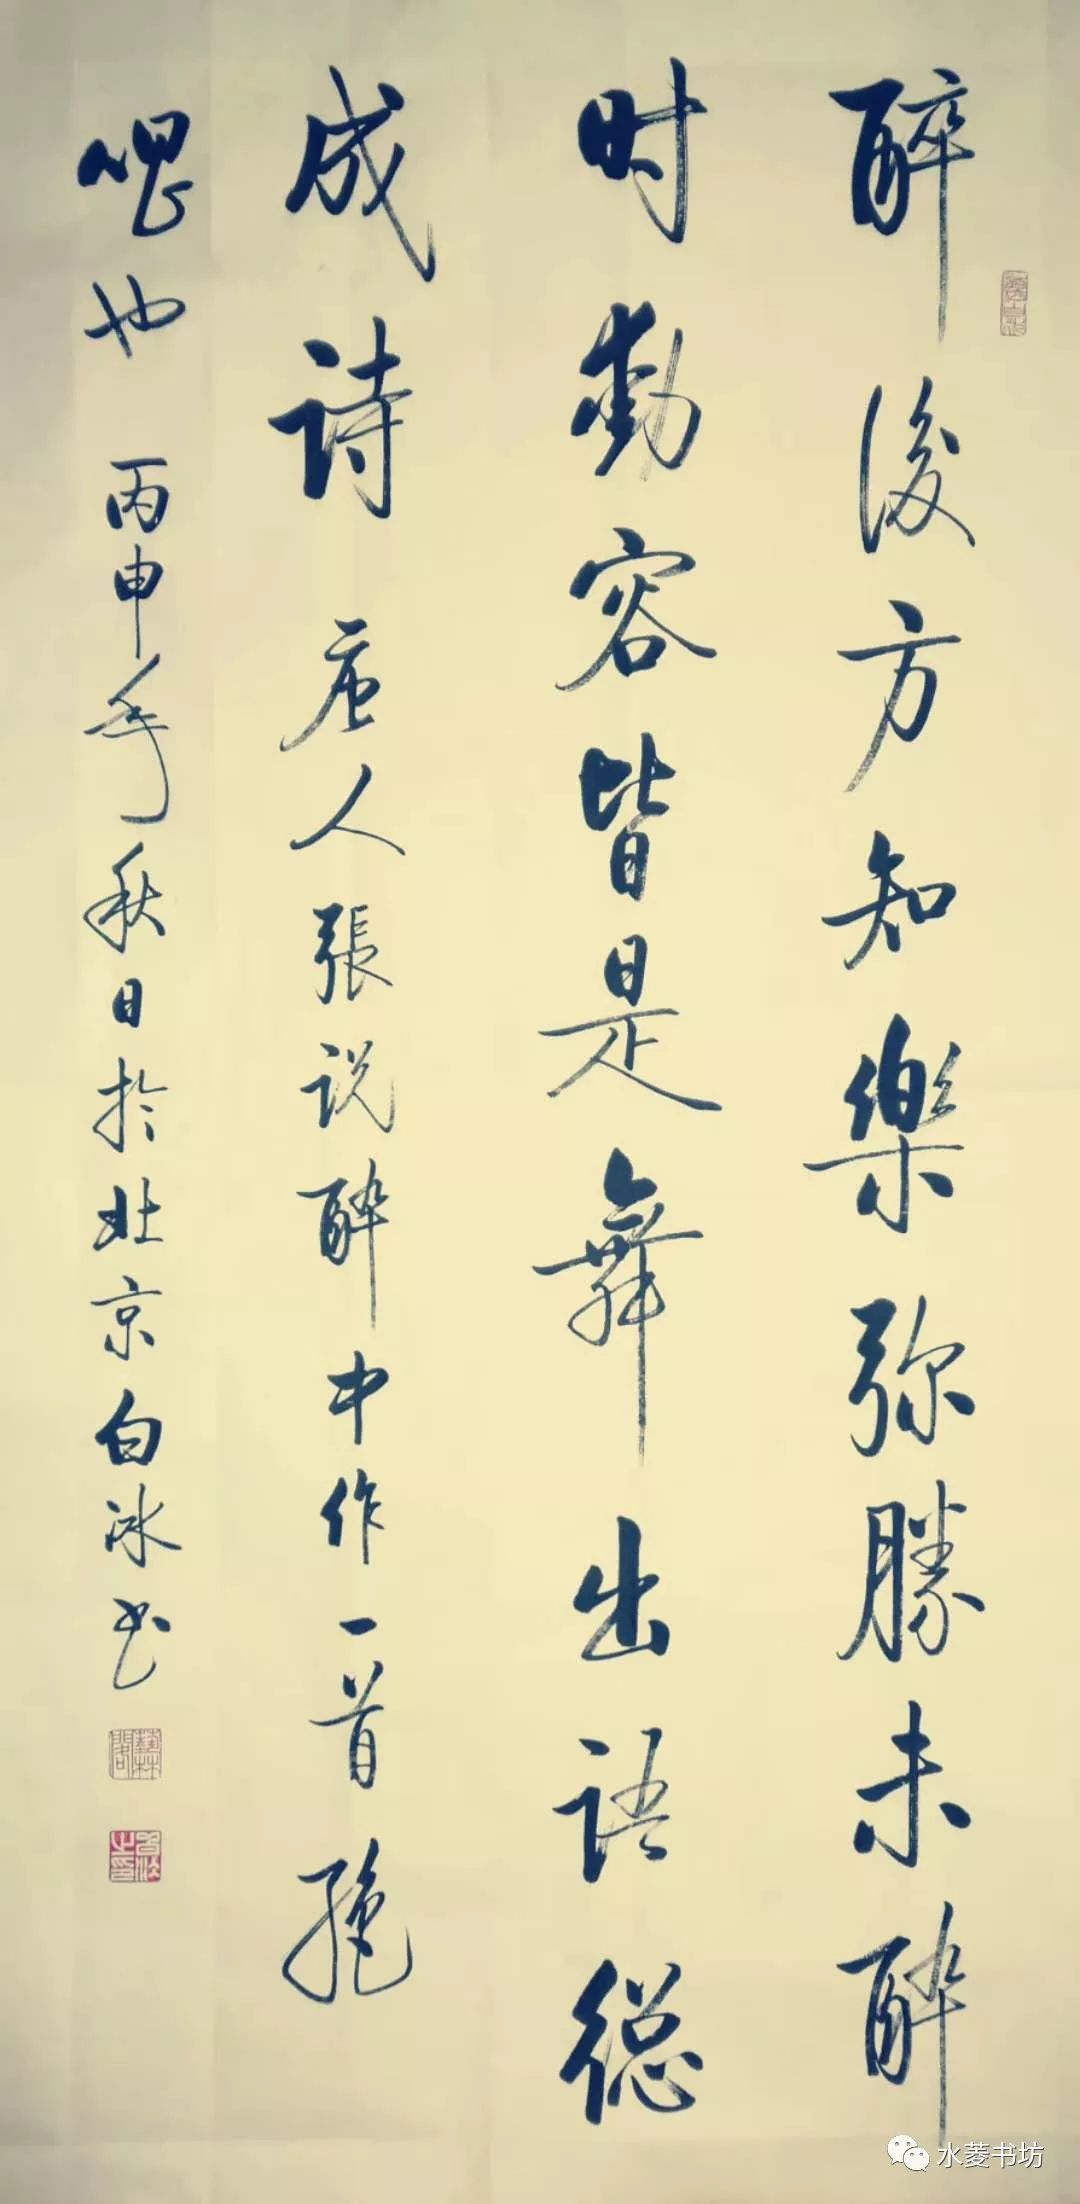 醉後方知樂弥勝未醉
时動容皆是舞出语總
成诗 唐人張说醉中作一首绝
唱也 丙申年秋日於北京白冰书
水菱书坊